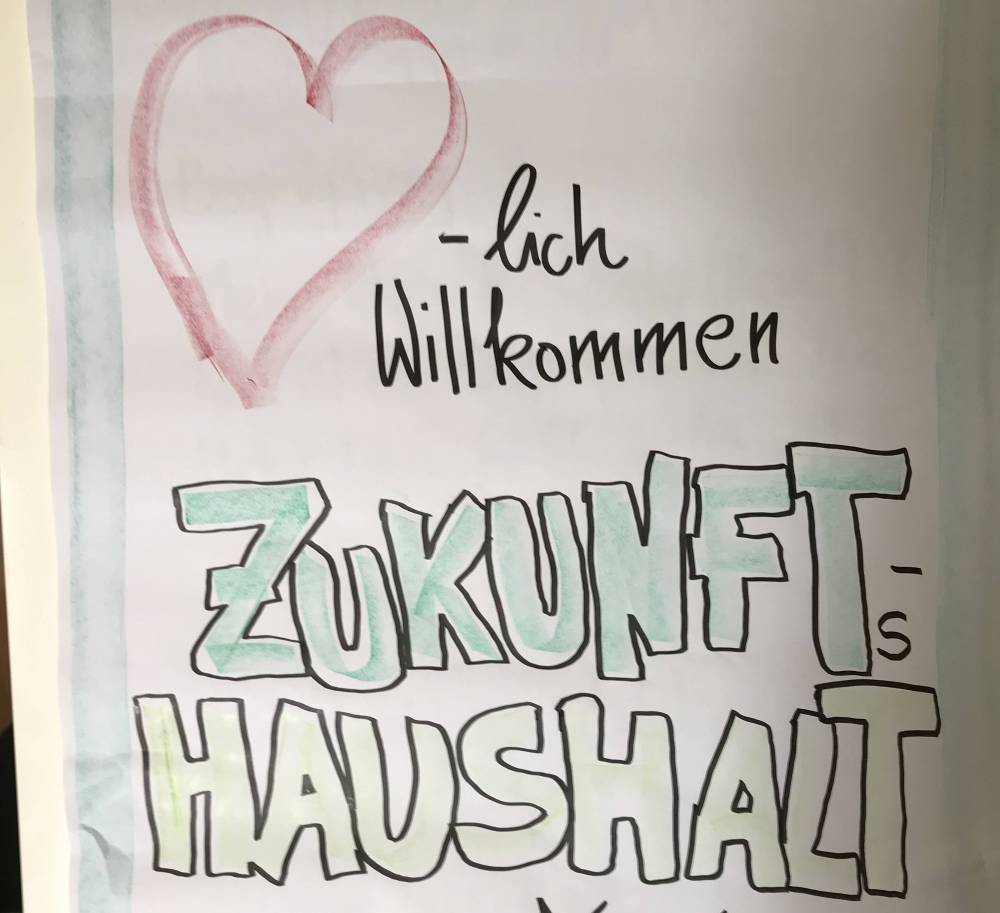 -lich
Willkommen
ZUKUNFT-
s
HAUSHALT